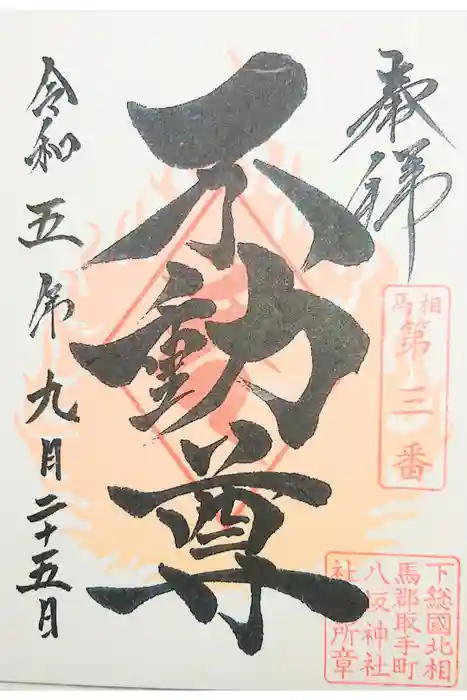 奉拝
相馬
第三番
不動尊
下總國北相
馬郡取手町
八坂神社
社務所章
令和五年九月二十五日